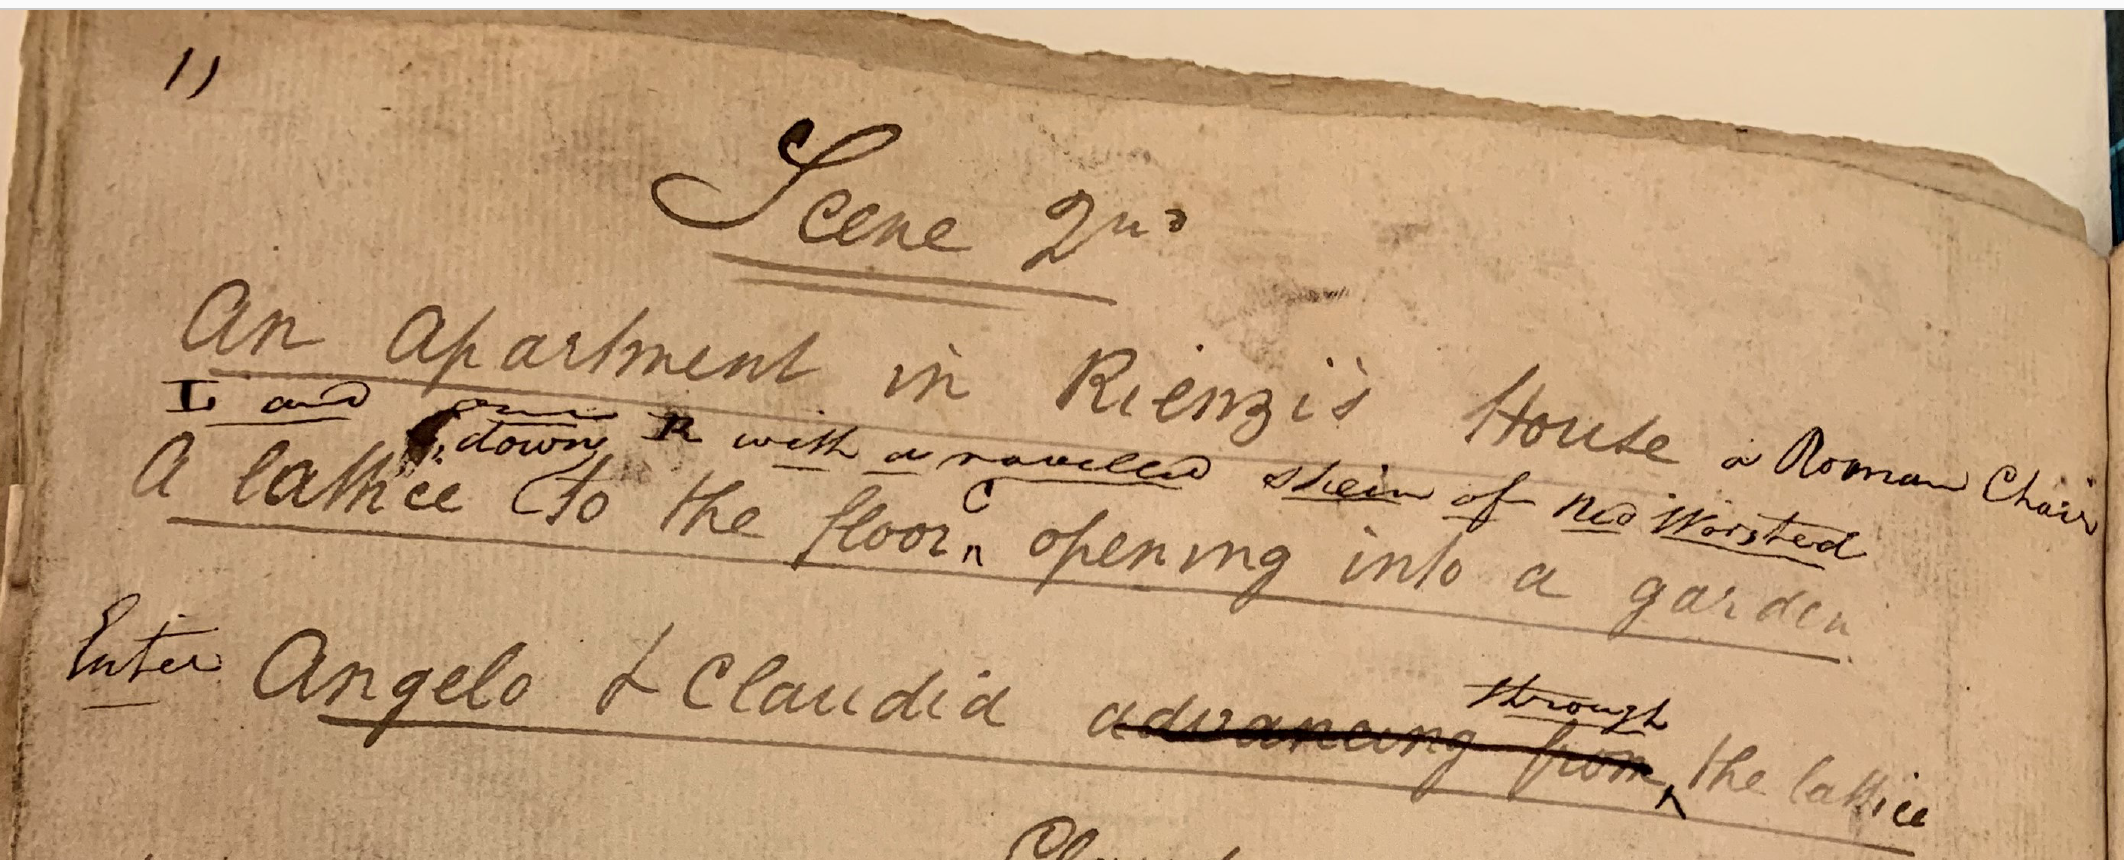 11
Scene 2nd
An Apartment in Rienzi's House a Roman Chair
and down R with a ravelled skein of Red Worsted
A lattice to the floor C opening into a garden
through
Enter Angelo & Claudia advancing from the lattice